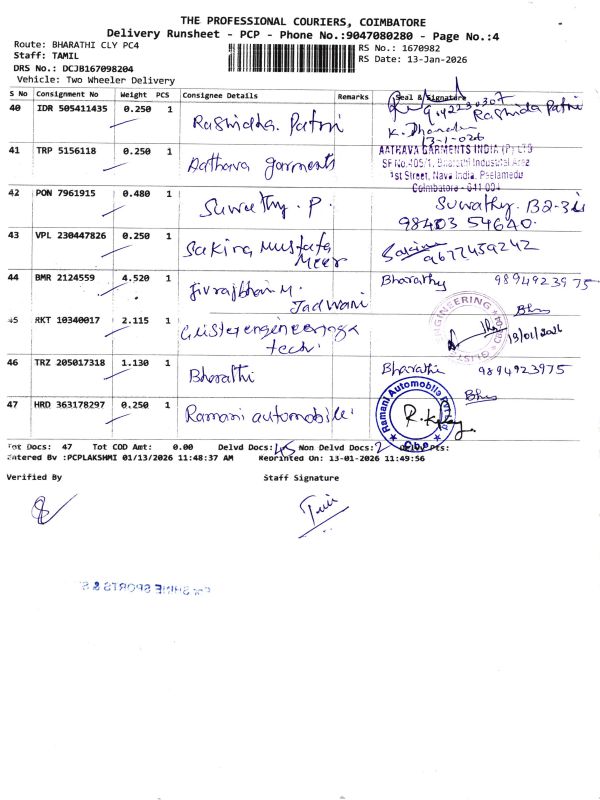 THE PROFESSIONAL COURIERS, COIMBATORE
Delivery Runsheet - PCP - Phone No.:9047080280 - Page No.:4
Route: BHARATHI CLY PC4
Staff: TAMIL
DRS No.: DCJB167098204
Vehicle: Two Wheeler Delivery
RS No.: 1670982
RS Date: 13-Jan-2026
S No Consignment No Weight PCS Consignee Details Remarks Seal & Signature
40 IDR 505411435 0.250 1 Rashidha. Patni Rashida Patni
13-1-026
41 TRP 5156118 0.250 1 Aathava garments
AATHAVA GARMENTS INDIA (P) LTD
SF No.405/1, Bharathi Industrial Area
1st Street, Nava India, Peelamedu
Coimbatore - 641 004
42 PON 7961915 0.480 1 Suwathy. P. Suwathy. B2-
98403 54640.
43 VPL 230447826 0.250 1 Sakina Mustafa Meer
9677459242
44 BMR 2124559 4.520 1 Jivrajbhai M. Jadwani Bharathy 9894923975
45 RKT 10340017 2.115 1 tech.
ENGINEERING
13/01/2026
46 TRZ 205017318 1.130 1 Bharathi Bharathi 9894923975
47 HRD 363178297 0.250 1 Ramani automobile.
Ramani Automobile
Tot Docs: 47 Tot COD Amt: 0.00 Delvd Docs: 45 Non Delvd Docs: 2 Pts:
Entered By :PCPLAKSHMI 01/13/2026 11:48:37 AM Reprinted On: 13-01-2026 11:49:56
Verified By Staff Signature